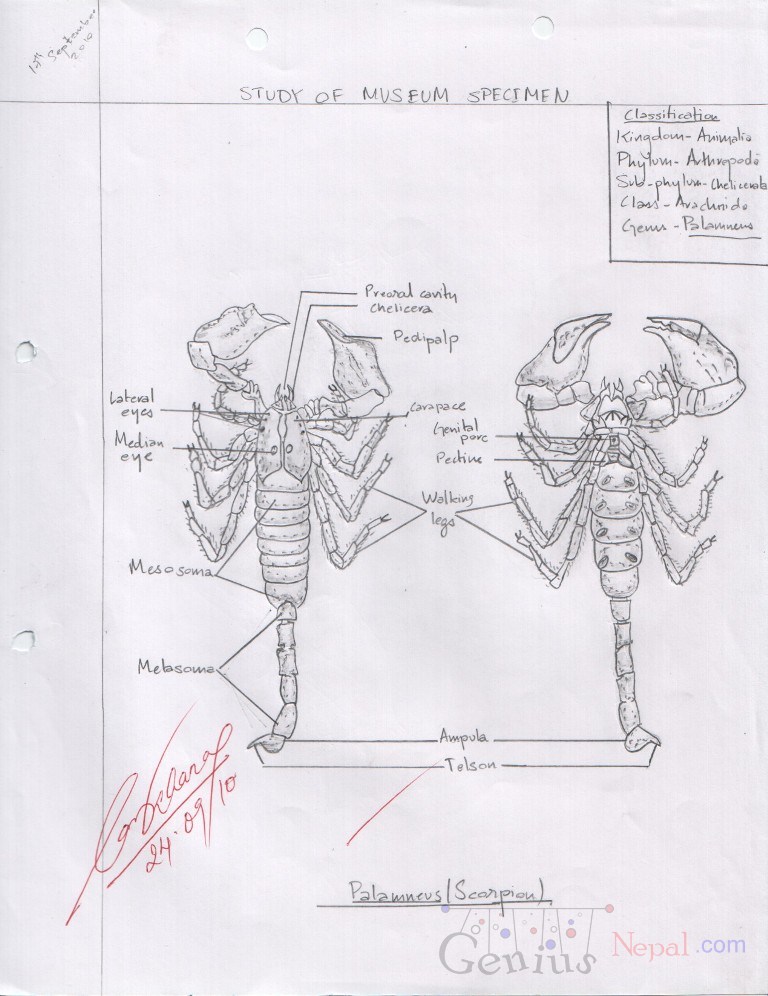 12th September
2010
STUDY OF MUSEUM SPECIMEN
Classification
Kingdom - Animalia
Phylum - Arthropoda
Sub-phylum - Chelicerata
Class - Arachnida
Genus - Palamneus
Preoral cavity
chelicera
Pedipalp
Lateral
eyes
Carapace
Median
eye
Genital
pore
Pectine
Walking
legs
Mesosoma
Metasoma
Ampula
Telson
24.09/10
Palamneus (Scorpion)
Genius Nepal.com